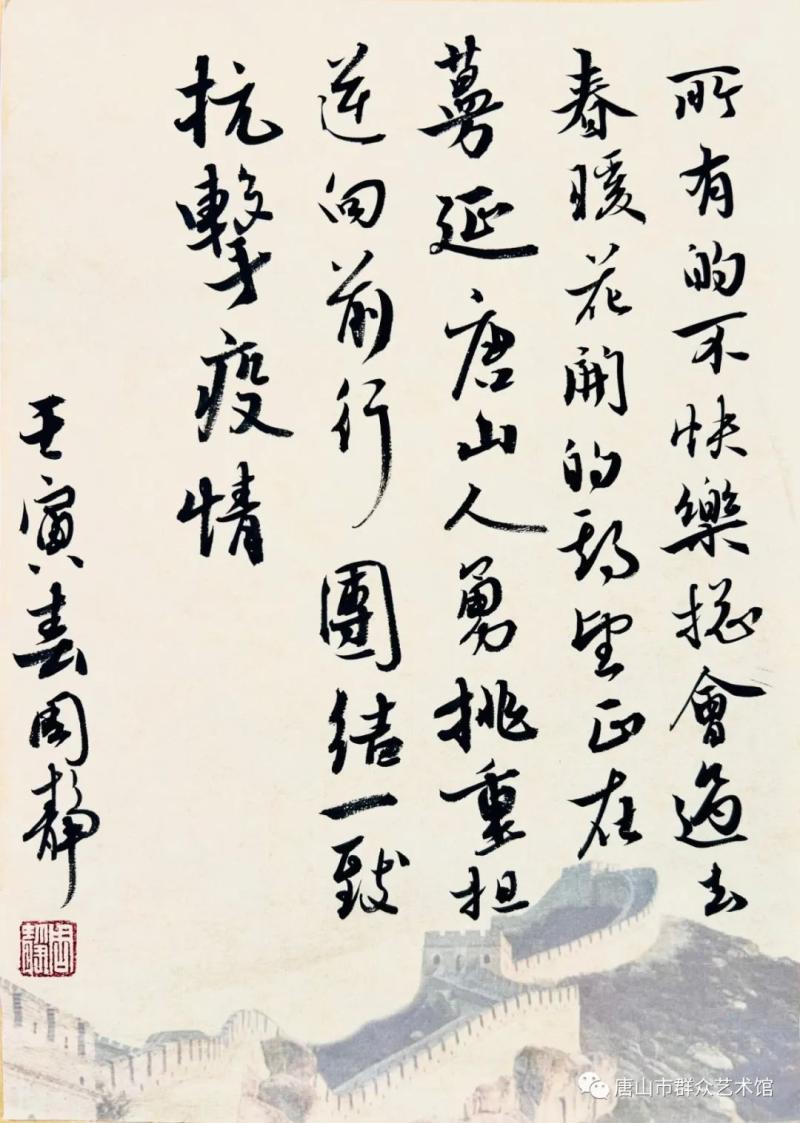 所有的不快樂揔會過去
春暖花開的期望正在
蔓延唐山人勇挑重担
逆向前行團結一致
抗擊疫情
壬寅春周静
周靜
唐山市群众艺术馆